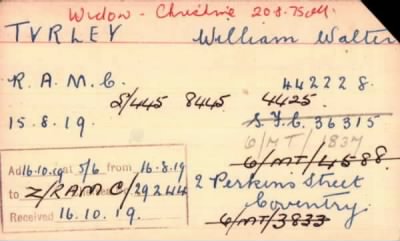 Widow - Christine 20.8.75
TURLEY William Walter
R. A. M. C. 44222 8.
S/445 8445 4425.
15.8.19. S.J.C. 36315
6/MT/1837
6/MT/4588.
Ad 16.10.19 at 5/6 from 16.8.19
to Z/RAMC/29244
2 Perkins Street
Coventry.
Received 16.10.19.
6/MT/3833